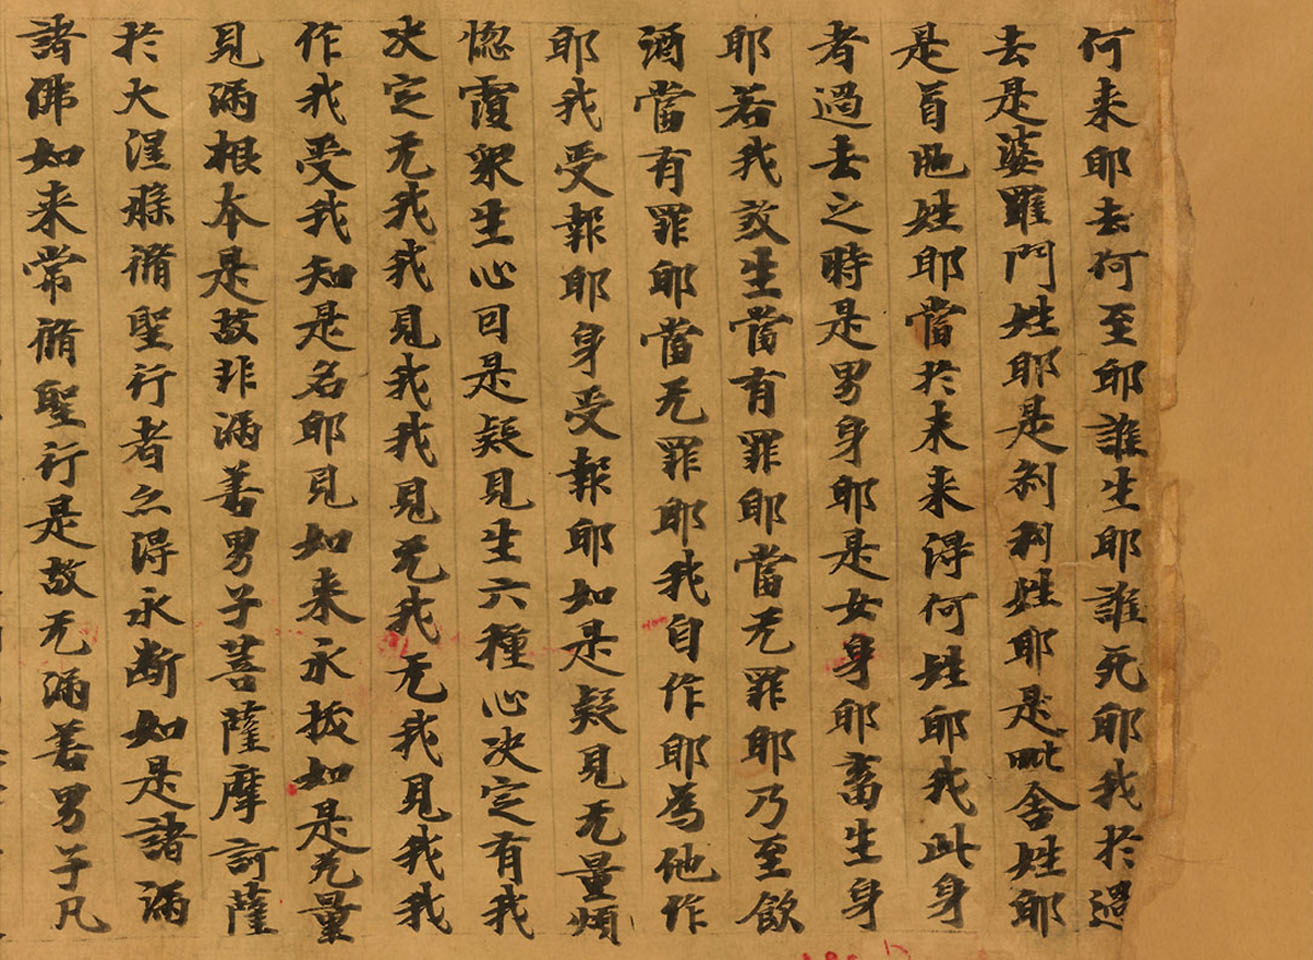 何来耶去何至耶誰生耶誰死耶我於過
去是婆羅門姓耶是刹利姓耶是毗舍姓耶
是首陁姓耶當於未来得何姓耶我此身
者過去之時是男身耶是女身耶畜生身
耶若我殺生當有罪耶當无罪耶乃至飲
酒當有罪耶當无罪耶我自作耶為他作
耶我受報耶身受報耶如是疑見无量煩
惚覆衆生心因是疑見生六種心决定有我
决定无我我見我我見无我无我見我我
作我受我知是名耶見如来永拔如是无量
見漏根本是故非漏善男子菩薩摩訶薩
於大涅槃脩聖行者亦得永断如是諸漏
諸佛如来常脩聖行是故无漏善男子凡